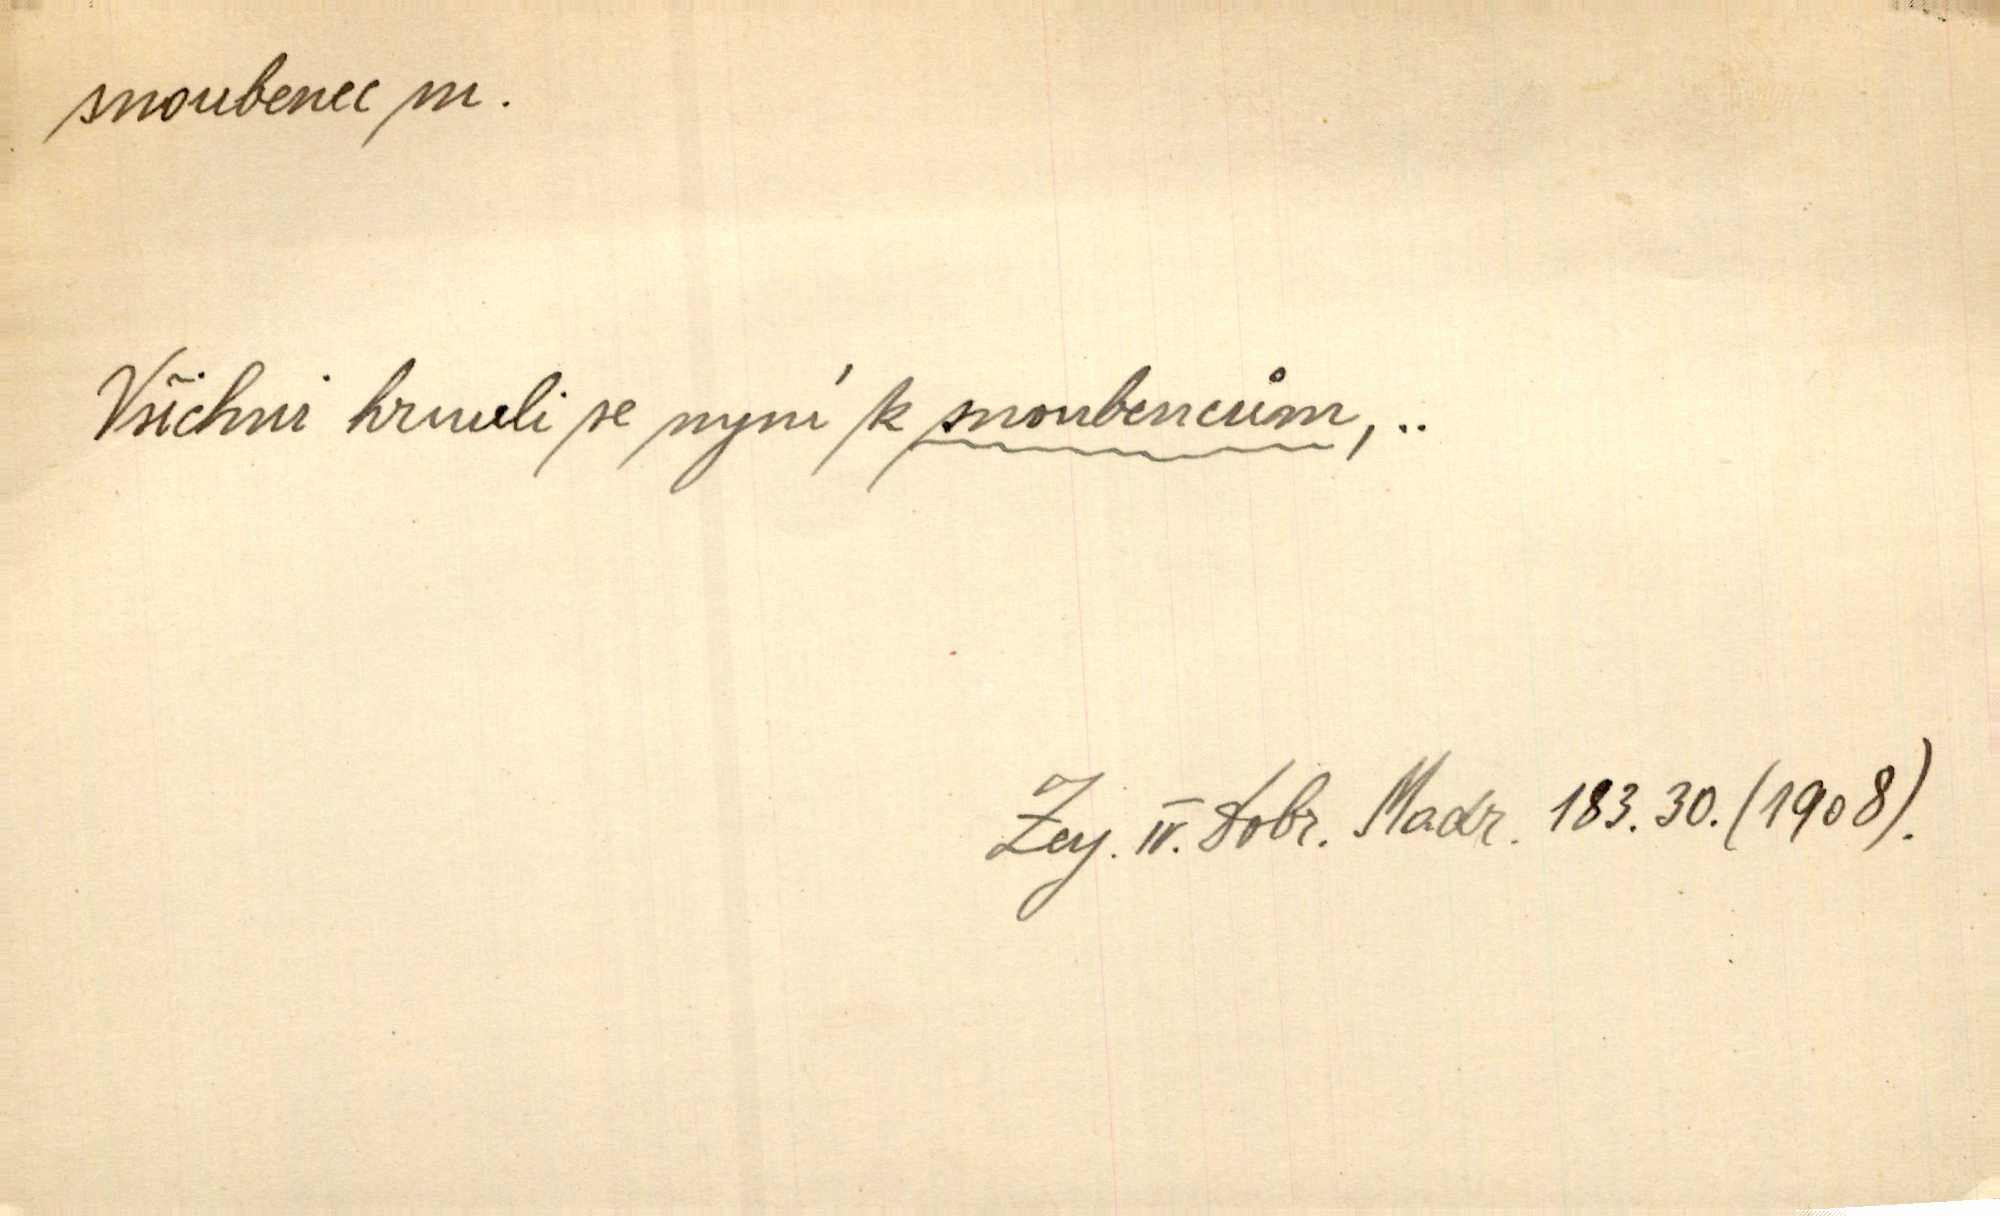 snoubenec m.
Všichni hrnuli se nyní k snoubencům, ..
Zey. IV. Dobr. Madr. 183. 30. (1908).